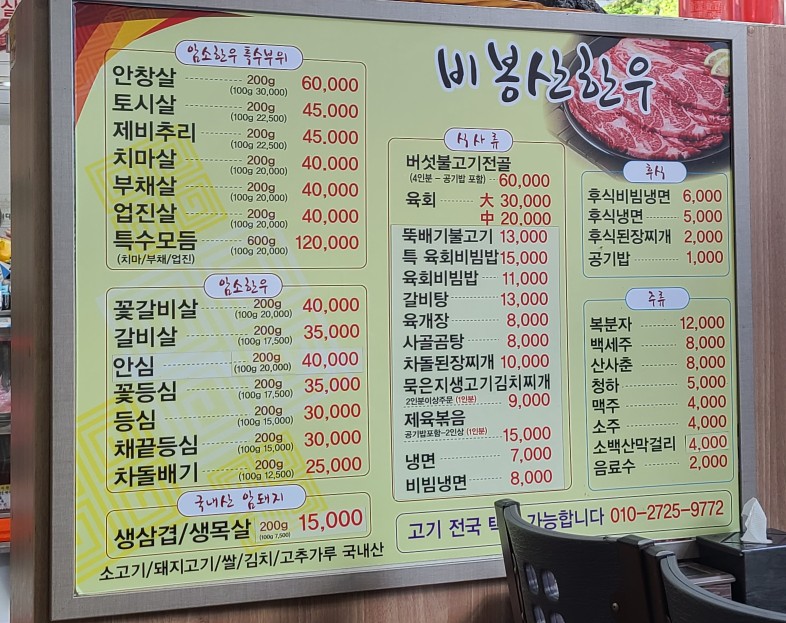 비봉산한우
암소한우 특수부위
안창살 200g (100g 30,000) 60,000
토시살 200g (100g 22,500) 45.000
제비추리 200g (100g 22,500) 45.000
치마살 200g (100g 20,000) 40.000
부채살 200g (100g 20,000) 40,000
업진살 200g (100g 20,000) 40,000
특수모듬 600g (100g 20,000) 120,000
(치마/부채/업진)
암소한우
꽃갈비살 200g (100g 20,000) 40,000
갈비살 200g (100g 17,500) 35,000
안심 200g (100g 20,000) 40,000
꽃등심 200g (100g 17,500) 35,000
등심 200g (100g 15,000) 30,000
채끝등심 200g (100g 15,000) 30,000
차돌배기 200g (100g 12,500) 25,000
국내산 암돼지
생삼겹/생목살 200g (100g 7,500) 15,000
소고기/돼지고기/쌀/김치/고추가루 국내산
식사류
버섯불고기전골
(4인분 - 공기밥 포함) 60,000
육회 大 30,000
中 20,000
뚝배기불고기 13,000
특 육회비빔밥 15,000
육회비빔밥 11,000
갈비탕 13,000
육개장 8,000
사골곰탕 8,000
차돌된장찌개 10,000
묵은지생고기김치찌개
2인분이상주문 (1인분) 9,000
제육볶음
공기밥포함-2인상 (1인분) 15,000
냉면 7,000
비빔냉면 8,000
후식
후식비빔냉면 6,000
후식냉면 5,000
후식된장찌개 2,000
공기밥 1,000
주류
복분자 12,000
백세주 8,000
산사춘 8,000
청하 5,000
맥주 4,000
소주 4,000
소백산막걸리 4,000
음료수 2,000
고기 전국 가능합니다 010-2725-9772